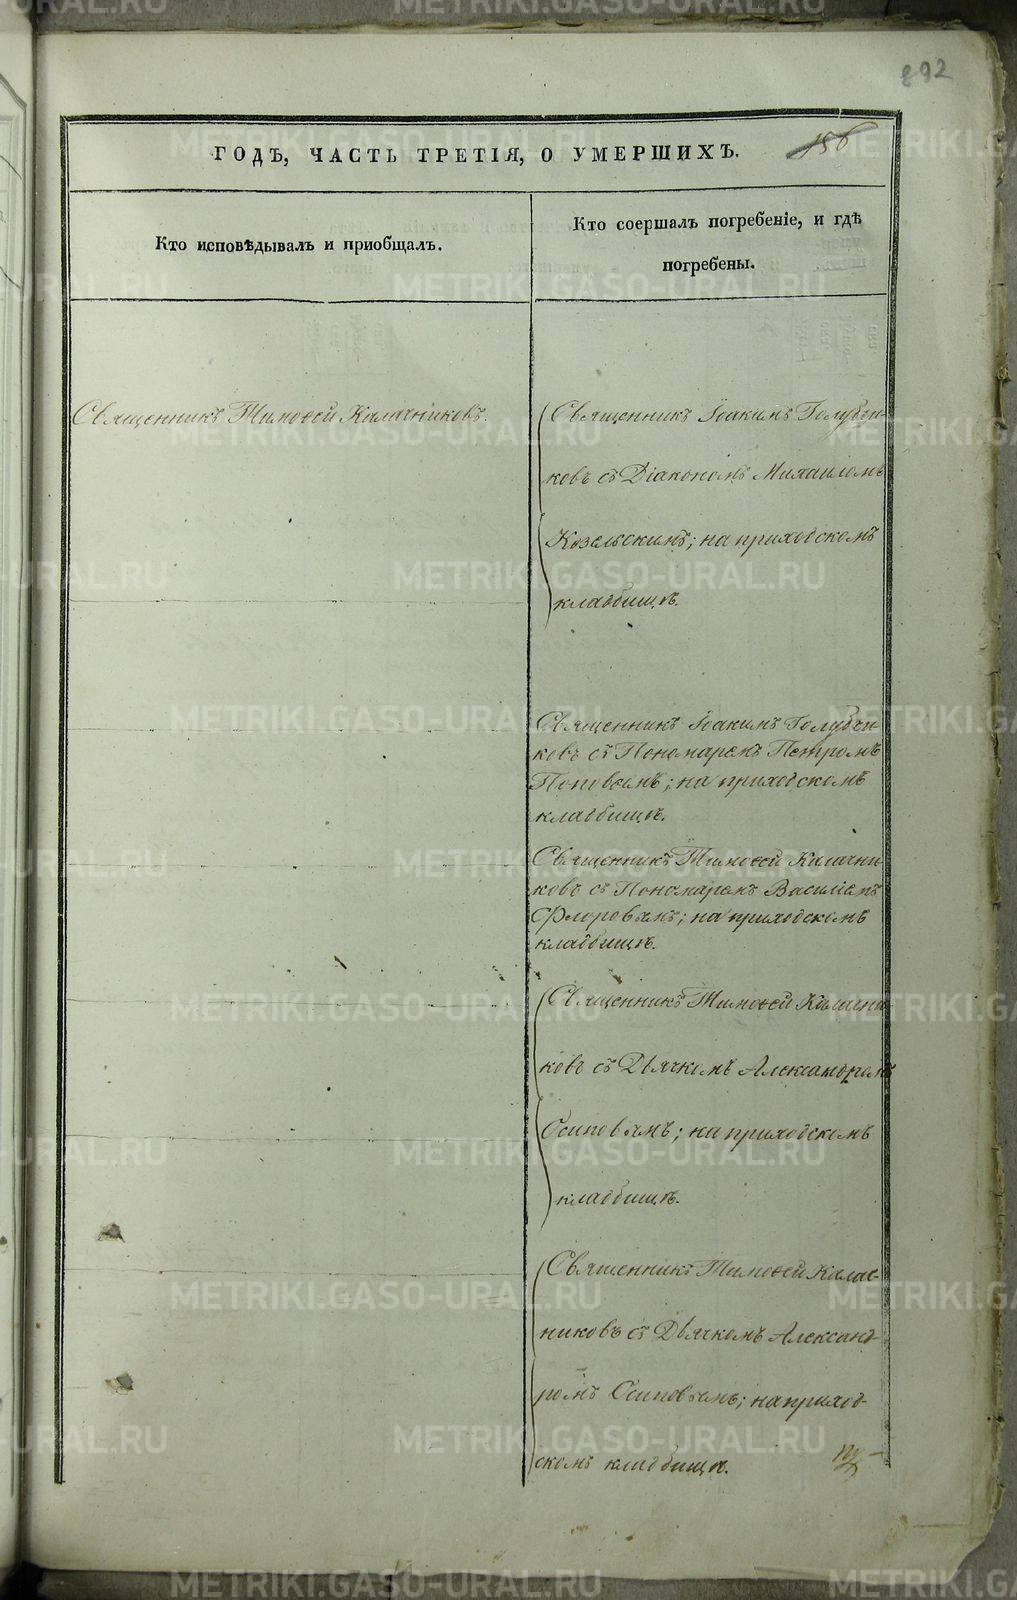 892
156
ГОДЪ, ЧАСТЬ ТРЕТІЯ, О УМЕРШИХЪ.
Кто исповѣдывалъ и приобщалъ.
Кто соершалъ погребеніе, и гдѣ
погребены.
Священникъ Тимоѳей Калачниковъ.
Священникъ Іоакимъ Голубчи-
ковъ съ Діакономъ Михаиломъ
Козельскимъ; на приходскомъ
кладбищѣ.
Священникъ Іоакимъ Голубчи-
ковъ съ Пономаремъ Петромъ
Поповымъ; на приходскомъ
кладбищѣ.
Священникъ Тимоѳей Калачни-
ковъ съ Пономаремъ Василіемъ
Флоровымъ; на приходскомъ
кладбищѣ.
Священникъ Тимоѳей Калачни-
ковъ съ Дьячкомъ Александромъ
Осиповымъ; на приходскомъ
кладбищѣ.
Священникъ Тимоѳей Калач-
никовъ съ Дьячкомъ Александ-
ромъ Осиповымъ; на приход-
скомъ кладбищѣ.
METRIKI.GASO-URAL.RU